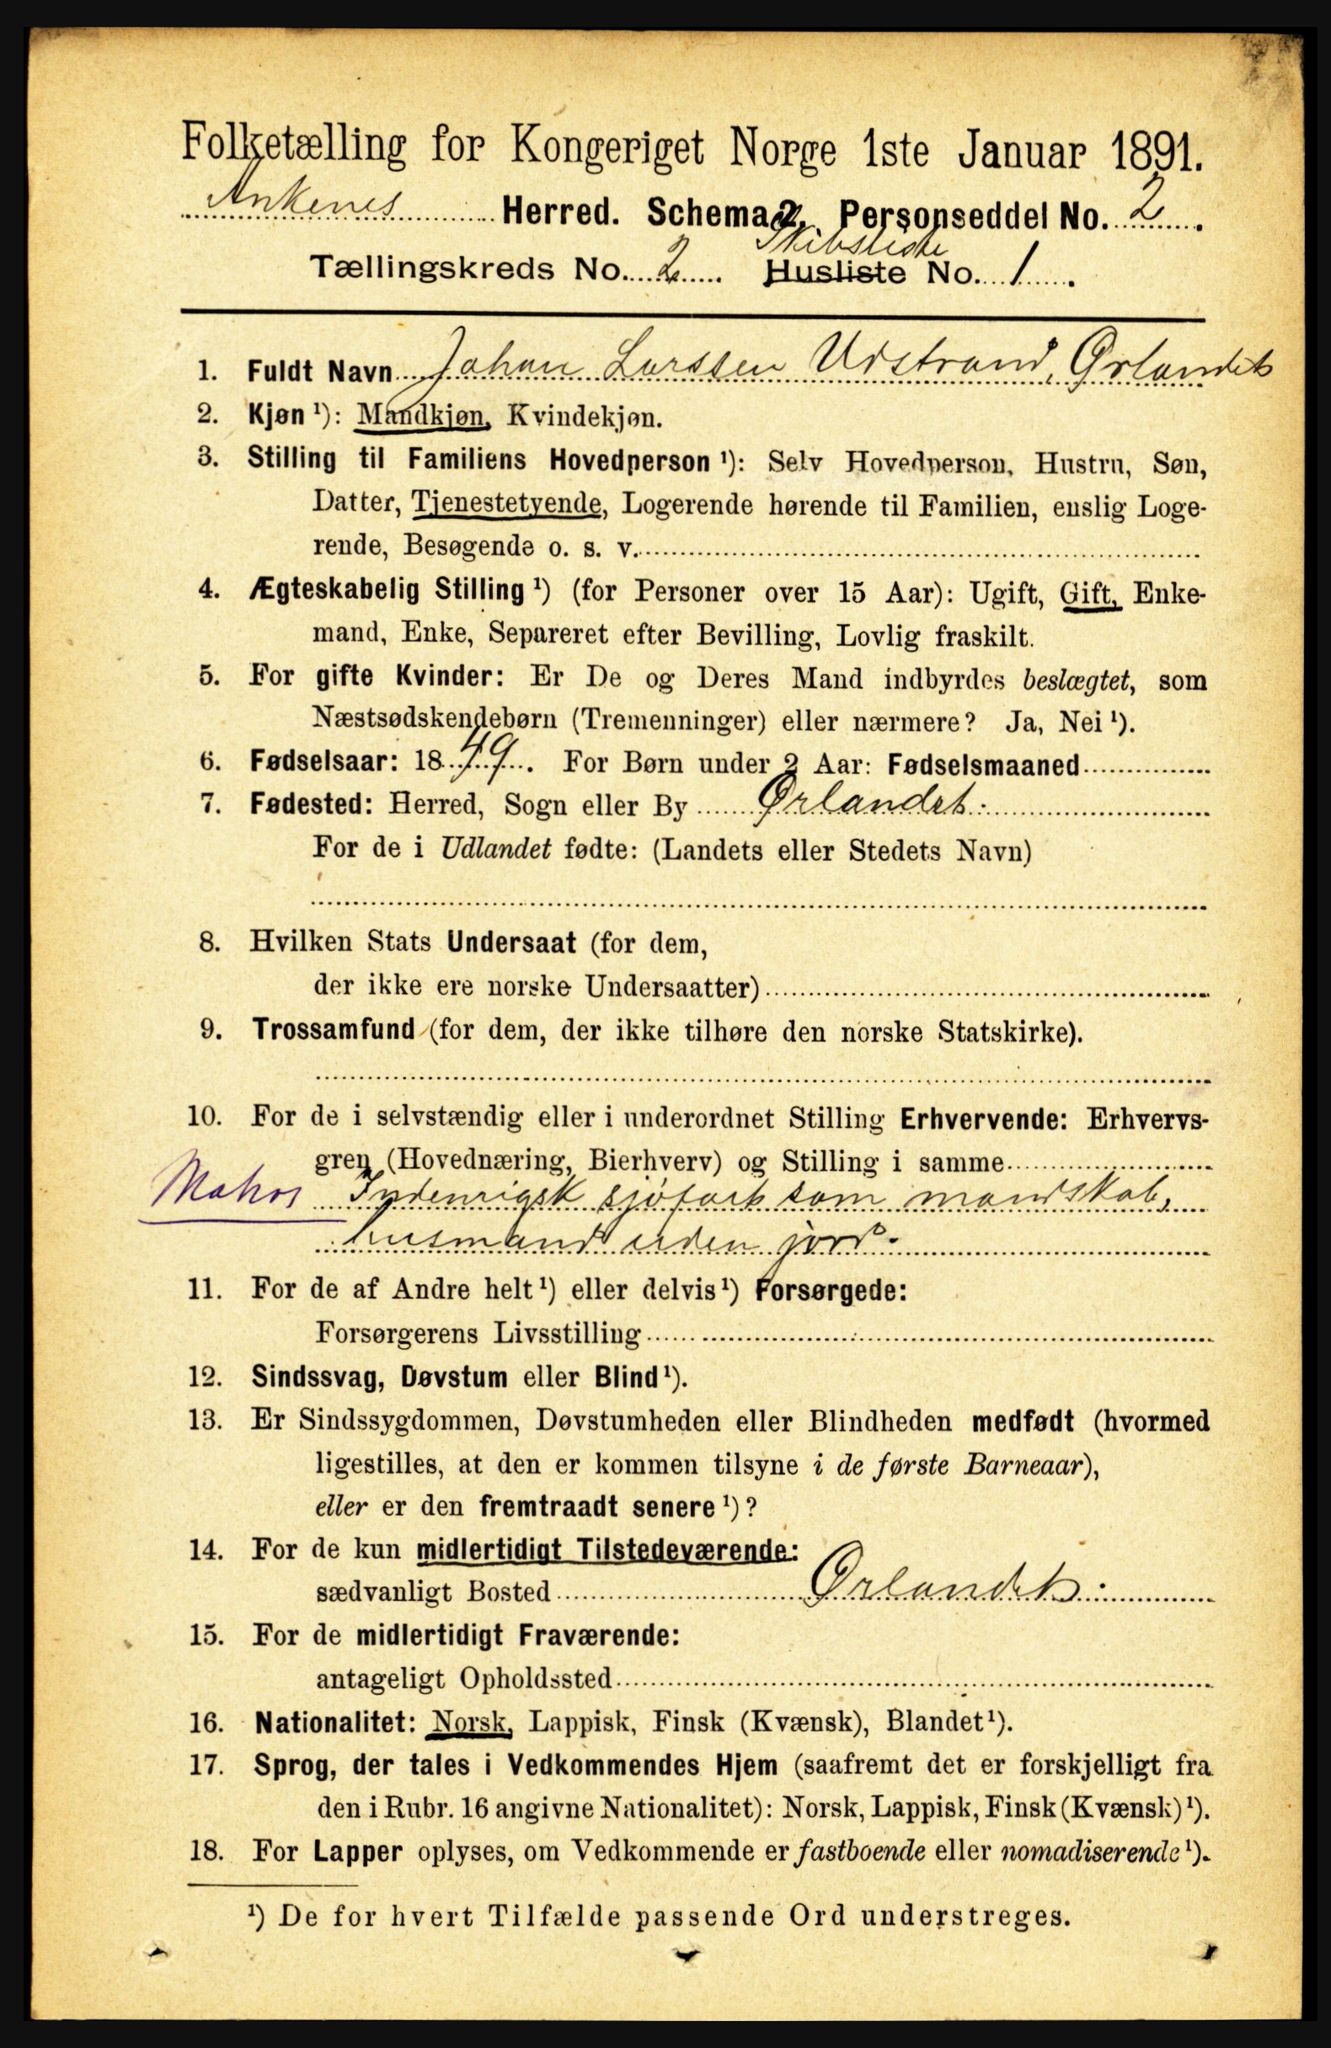 Folketælling for Kongeriget Norge 1ste Januar 1891.
Ankenes Herred. Schema 2. Personseddel No. 2.
Skibsliste
Tællingskreds No. 2. Husliste No. 1.
1. Fuldt Navn Johan Larssen Udstrand, Ørlandet
2. Kjøn ¹): Mandkjøn, Kvindekjøn.
3. Stilling til Familiens Hovedperson ¹): Selv Hovedperson, Hustru, Søn,
Datter, Tjenestetyende, Logerende hørende til Familien, enslig Loge-
rende, Besøgende o. s. v.
4. Ægteskabelig Stilling ¹) (for Personer over 15 Aar): Ugift, Gift, Enke-
mand, Enke, Separeret efter Bevilling, Lovlig fraskilt.
5. For gifte Kvinder: Er De og Deres Mand indbyrdes beslægtet, som
Næstsødskendebørn (Tremenninger) eller nærmere? Ja, Nei ¹).
6. Fødselsaar: 1849. For Børn under 2 Aar: Fødselsmaaned
7. Fødested: Herred, Sogn eller By Ørlandet.
For de i Udlandet fødte: (Landets eller Stedets Navn)
8. Hvilken Stats Undersaat (for dem,
der ikke ere norske Undersaatter)
9. Trossamfund (for dem, der ikke tilhøre den norske Statskirke).
10. For de i selvstændig eller i underordnet Stilling Erhvervende: Erhvervs-
gren (Hovednæring, Bierhverv) og Stilling i samme
Matros Indenrigsk sjøfart som mandskab,
husmand uden jord.
11. For de af Andre helt ¹) eller delvis ¹) Forsørgede:
Forsørgerens Livsstilling
12. Sindssvag, Døvstum eller Blind ¹).
13. Er Sindssygdommen, Døvstumheden eller Blindheden medfødt (hvormed
ligestilles, at den er kommen tilsyne i de første Barneaar),
eller er den fremtraadt senere ¹)?
14. For de kun midlertidigt Tilstedeværende:
sædvanligt Bosted Ørlandet.
15. For de midlertidigt Fraværende:
antageligt Opholdssted
16. Nationalitet: Norsk, Lappisk, Finsk (Kvænsk), Blandet ¹).
17. Sprog, der tales i Vedkommendes Hjem (saafremt det er forskjelligt fra
den i Rubr. 16 angivne Nationalitet): Norsk, Lappisk, Finsk (Kvænsk) ¹).
18. For Lapper oplyses, om Vedkommende er fastboende eller nomadiserende ¹).
¹) De for hvert Tilfælde passende Ord understreges.